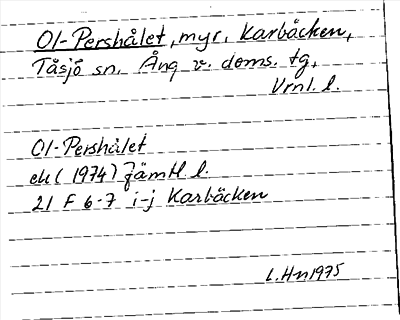 Ol-Pershålet, myr, Karbäcken,
Tåsjö sn. Ång v. doms. tg,
Vrnl. l.
Ol-Pershålet
ek (1974) Jämtl. l.
21 F 6-7 i-j Karbäcken
L.Hn 1975